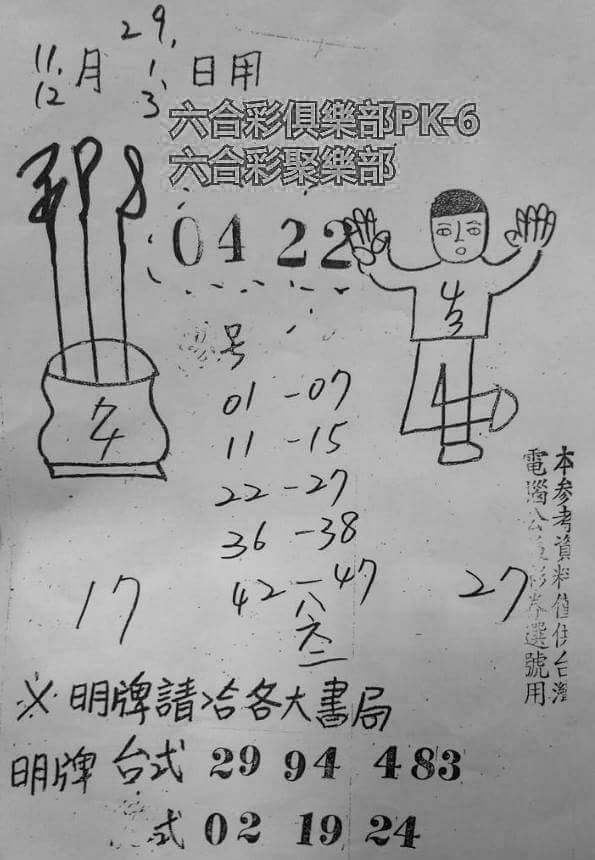 29,
11, 月 1, 日用
12 3
六合彩俱樂部PK-6
六合彩聚樂部
04 22
号
01-07
11-15
22-27
36-38
42-47
六二
17
27
本参考資料僅供台灣
電腦公益彩券選號用
※明牌請洽各大書局
明牌 台式 29 94 483
式 02 19 24